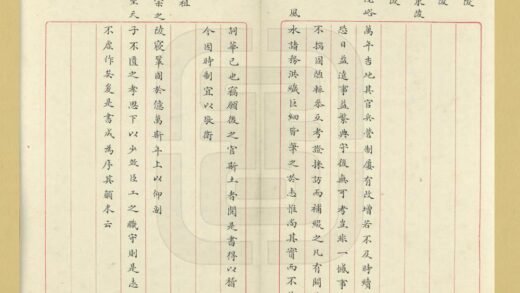 陵
陵
永陵
陵
峪
萬年吉地其官兵營制屢有改增若不及時續
恐日益遠事益繁典守後無可考豈非一憾事
不揣固陋輒參互考證採訪而補綴之凡有關
風水諸務洪纖巨細皆筆之於志惟尚其實而不
詞華已也竊願後之官斯土者閱是書得以稽
今因時制宜以張衛
祖
宗之陵寢鞏固於億萬斯年上以仰副
天子不匱之孝思下以少效臣工之職守則是志
不虛作矣爰是書成為序其顛末云